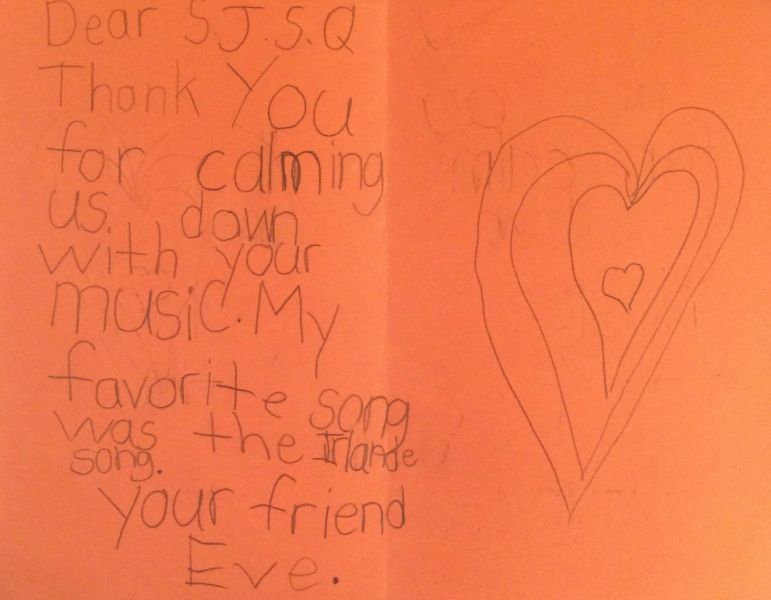 Dear S.J.S.Q
Thank You
for calming
us down
with your
music. My
favorite song
was the Irlande
song.
your friend
Eve.